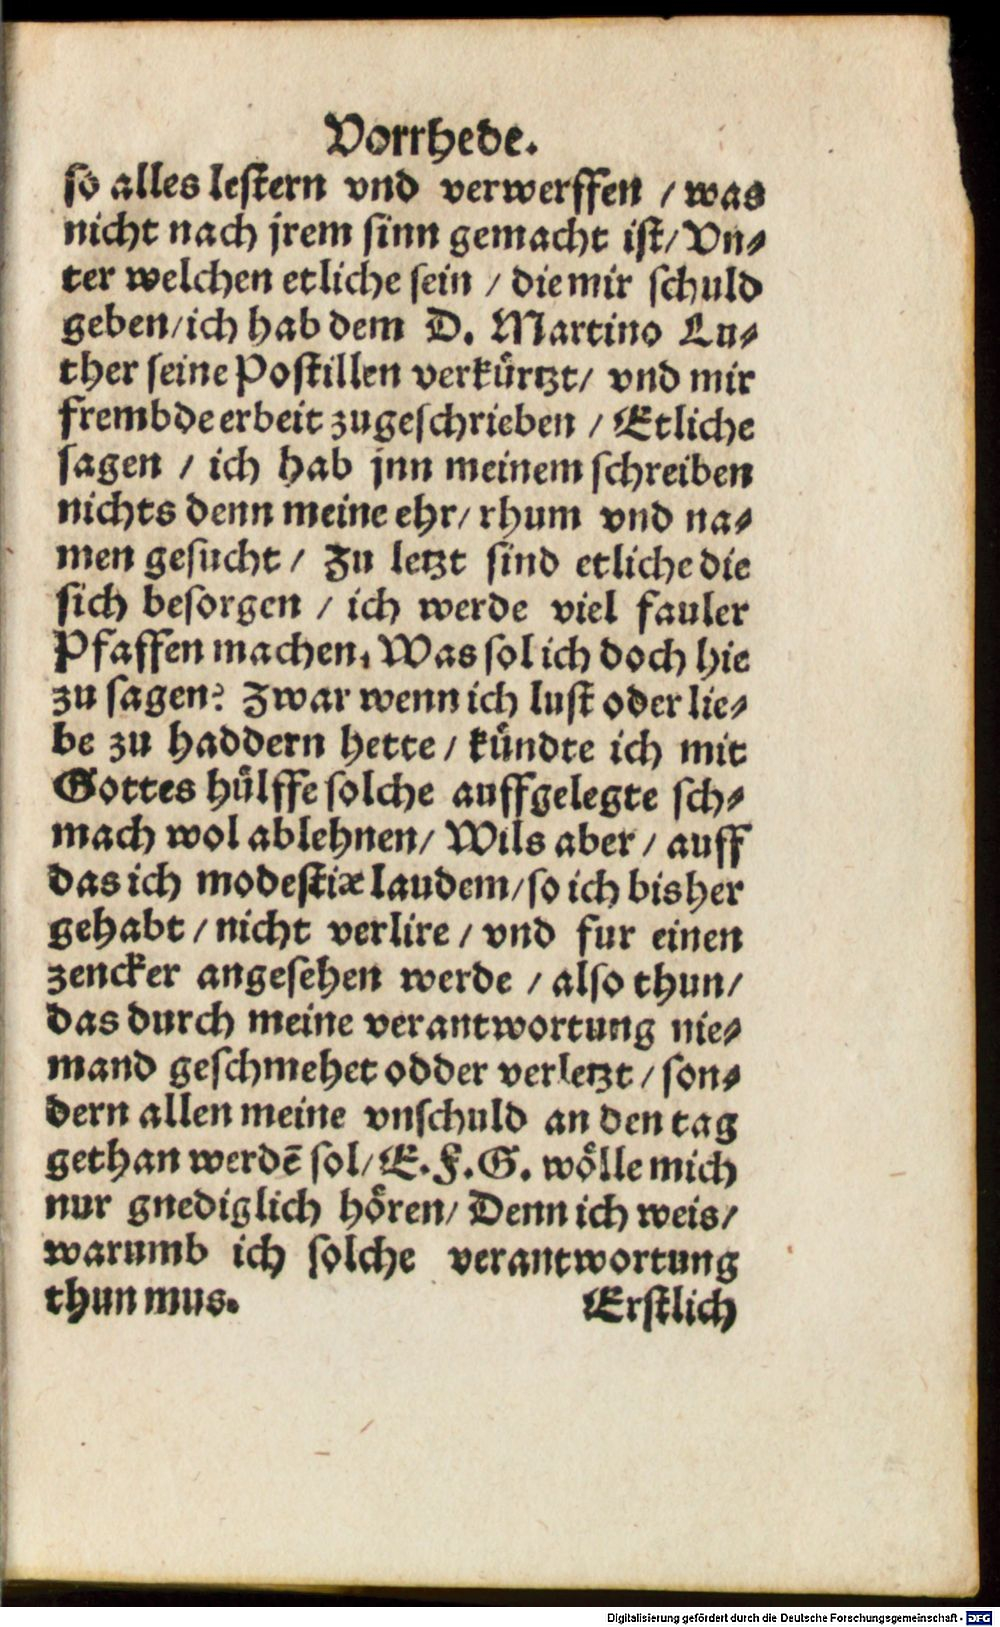 Vorrhede.
so alles lestern vnd verwerffen / was
nicht nach jrem sinn gemacht ist/ Vn⸗
ter welchen etliche sein / die mir schuld
geben/ich hab dem D. Martino Lu⸗
ther seine Postillen verkuͤrtzt/ vnd mir
frembde erbeit zugeschrieben / Etliche
sagen / ich hab jnn meinem schreiben
nichts denn meine ehr/ rhum vnd na⸗
men gesucht/ Zu letzt sind etliche die
sich besorgen / ich werde viel fauler
Pfaffen machen. Was sol ich doch hie
zu sagen? Zwar wenn ich lust oder lie⸗
be zu haddern hette / kuͤndte ich mit
Gottes huͤlffe solche auffgelegte sch⸗
mach wol ablehnen/ Wils aber / auff
das ich modestiæ laudem/so ich bisher
gehabt / nicht verlire / vnd fur einen
zencker angesehen werde / also thun/
das durch meine verantwortung nie⸗
mand geschmehet odder verletzt / son⸗
dern allen meine vnschuld an den tag
gethan werdē sol/ E. F. G. woͤlle mich
nur gnediglich hoͤren/ Denn ich weis/
warumb ich solche verantwortung
thun mus. Erstlich
Digitalisierung gefördert durch die Deutsche Forschungsgemeinschaft - DFG